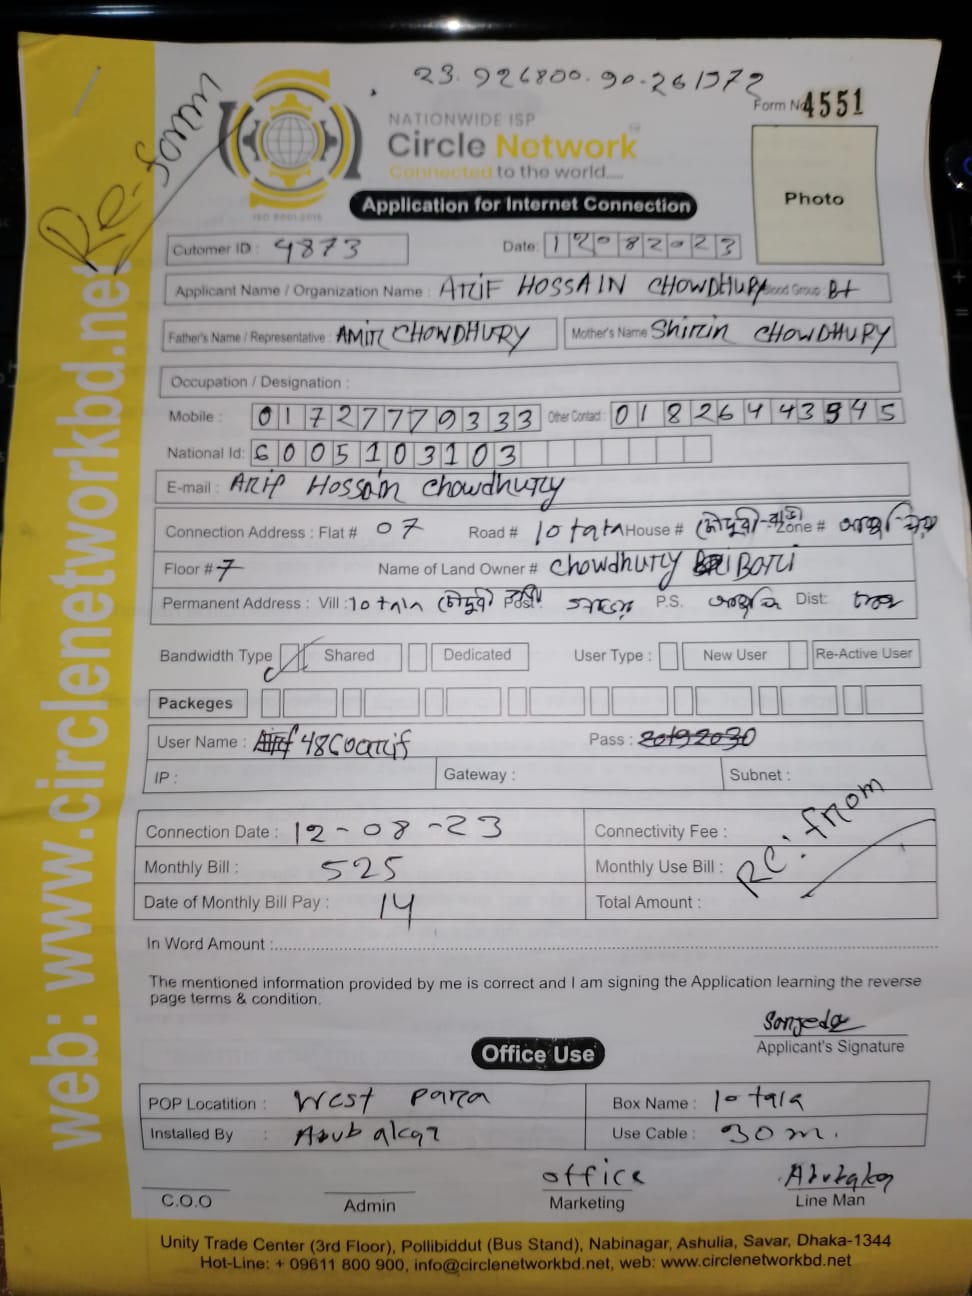 23.926800.90-261972
Re-form
Form No 4551
NATIONWIDE ISP
Circle Network
Connected to the world....
ISO 9001:2015
Photo
Application for Internet Connection
Cutomer ID : 4873 Date: 12082023
Applicant Name / Organization Name : ARIF HOSSAIN CHOWDHURY Blood Group : B+
Father's Name / Representative : AMIR CHOWDHURY Mother's Name Shirin CHOWDHURY
Occupation / Designation :
Mobile : 01727779333 Other Contact : 01826443945
National Id: 6005103103
E-mail : ARIF Hossain chowdhury
Connection Address : Flat # 07 Road # 10 tala House # চৌধুরী-বাড়ী Zone #
Floor # 7 Name of Land Owner # chowdhury BARI
Permanent Address : Vill : 10 tala চৌধুরী বাড়ী Post: P.S. Dist:
Bandwidth Type Shared Dedicated User Type : New User Re-Active User
Packeges
User Name : Arif 48Coarif Pass : 20192030
IP : Gateway : Subnet :
Connection Date : 12-08-23 Connectivity Fee :
Monthly Bill : 525 Monthly Use Bill :
Re: from
Date of Monthly Bill Pay : 14 Total Amount :
In Word Amount :
The mentioned information provided by me is correct and I am signing the Application learning the reverse
page terms & condition.
Sonjeda
Applicant's Signature
Office Use
POP Locatition : West para Box Name : 10 tala
Installed By : Abubakar Use Cable : 30 m.
office Abubakar
C.O.O Admin Marketing Line Man
Unity Trade Center (3rd Floor), Pollibiddut (Bus Stand), Nabinagar, Ashulia, Savar, Dhaka-1344
Hot-Line: + 09611 800 900, info@circlenetworkbd.net, web: www.circlenetworkbd.net
web: www.circlenetworkbd.net